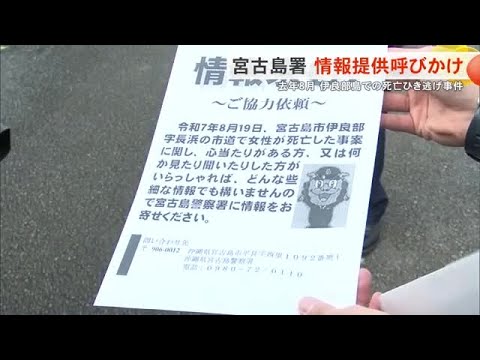 宮古島署 情報提供呼びかけ
去年8月 伊良部島での死亡ひき逃げ事件
情
～ご協力依頼～
令和7年8月19日、宮古島市伊良部
字長浜の市道で女性が死亡した事案
に関し、心当たりがある方、又は何
か見たり聞いたりした方が
いらっしゃれば、どんな些
細な情報でも構いませんの
で宮古島警察署に情報をお
寄せください。
問い合わせ先
〒906-0012 沖縄県宮古島市平良字西里1092番地1
沖縄県宮古島警察署
電話:0980-72-0110